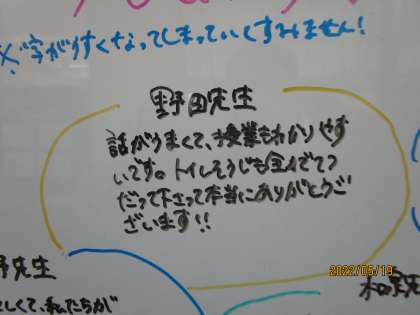 ※字がうすくなってしまっていてすみません！
野田先生
話がうまくて、授業もわかりやす
いです。トイレそうじも全んでてつ
だって下さって本当にありがとうご
ざいます!!
野先生
2022/05/19
しくて、私たちが